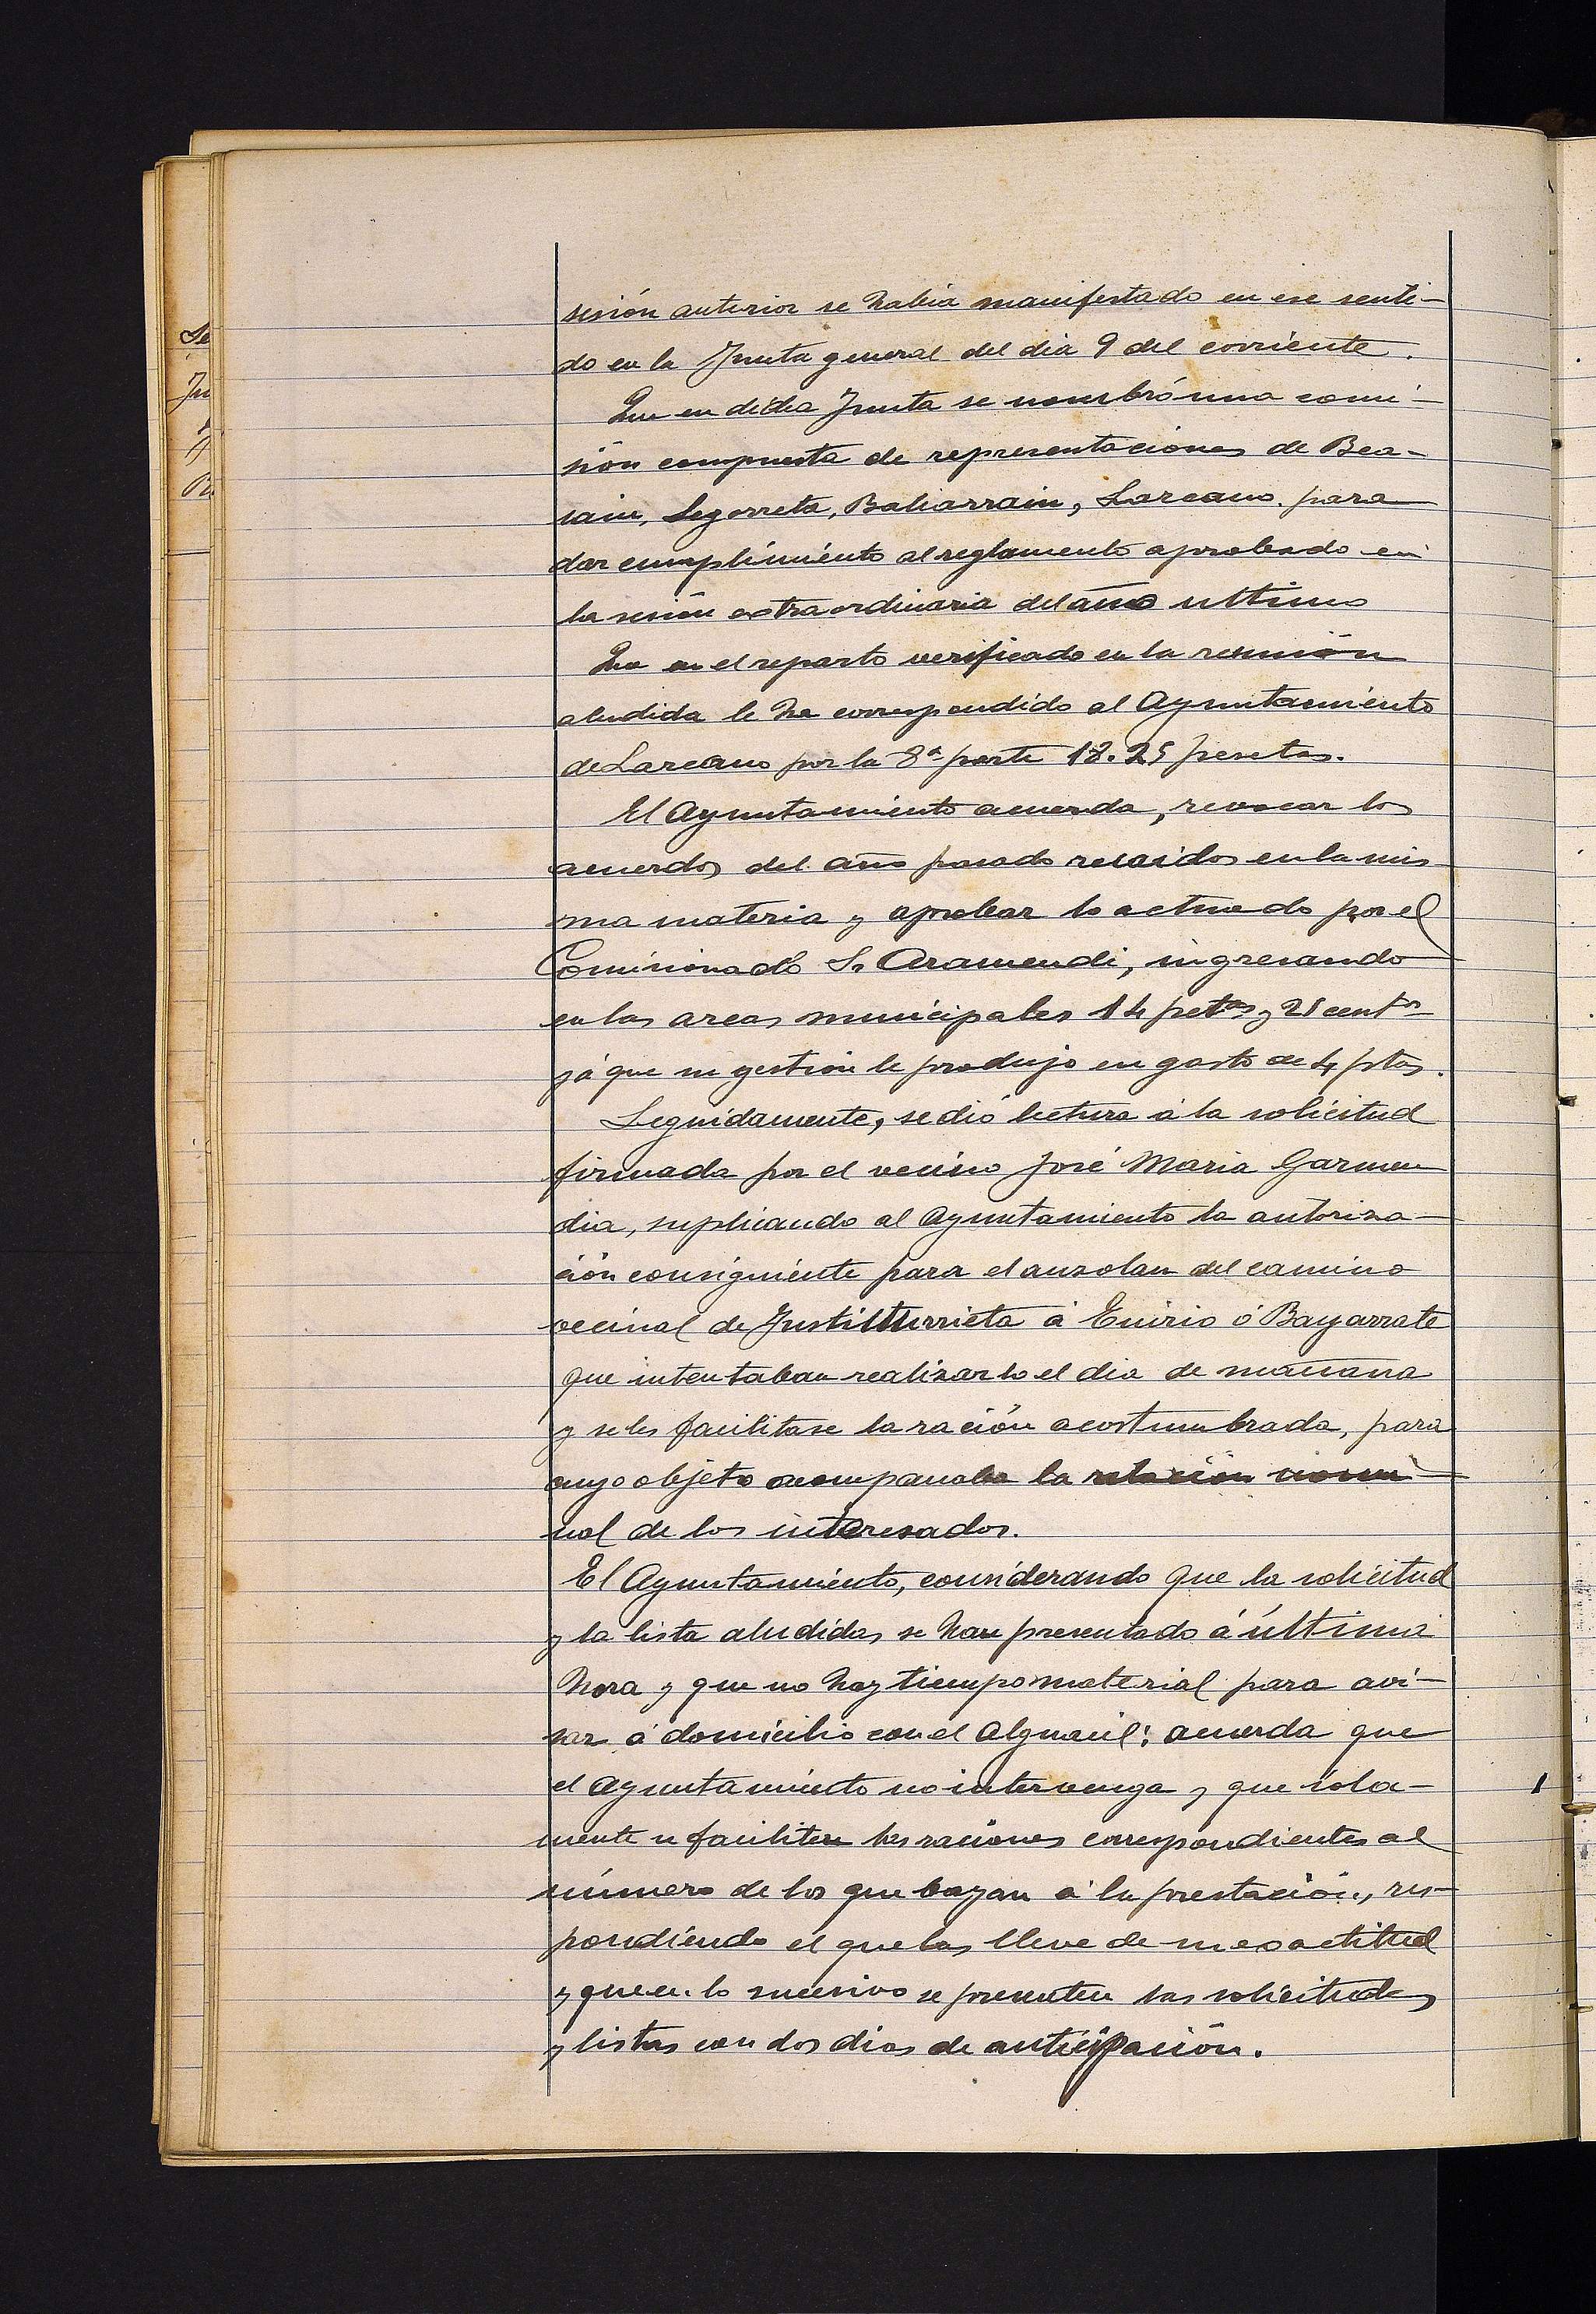 sesión anterior se había manifestado en ese senti-
do en la Junta general del dia 9 del corriente.
Que en dicha Junta se nombró una comi-
sión compuesta de representaciones de Bea-
sain, Legorreta, Baliarrain, Lazcano. para
dar cumplimiento al reglamento aprobado en
la sesión extraordinaria del año ultimo
Que en el reparto verificado en la reunión
aludida le ha correspondido al Ayuntamiento
de Lazcano por la 8ª parte 18.25 pesetas.
El Ayuntamiento acuerda, revocar los
acuerdos del año pasado recaidos en la mis-
ma materia y aprobar lo actuado por el
Comisionado Sr Aramendi, ingresando
en las arcas municipales 14 petas y 25 centos
yá que su gestión le produjo un gasto de 4 ptas.
Seguidamente, se dió lectura á la solicitud
firmada por el vecino José Maria Garmen
dia, suplicando al Ayuntamiento la autoriza-
ción consiguiente para el auzolan del camino
vecinal de Justiturrieta á Enirio ó Bayarrate
que intentaban realizarlo el dia de mañana
y se les facilitase la ración acostumbrada, para
cuyo objeto acompañaba la relación nomi-
nal de los interesados.
El Ayuntamiento, considerando que la solicitud
y la lista aludidas se han presentado á última
hora y que no hay tiempo material para avi-
sar á domicilio con el Alguacil; acuerda que
el Ayuntamiento no intervenga y que sola-
mente se faciliten las raciones correspondientes al
número de los que bayan á la prestación, res-
pondiendo el que las lleve de inexactitud
y que en lo sucesivo se presenten las solicitudes
y listas con dos dias de anticipación.